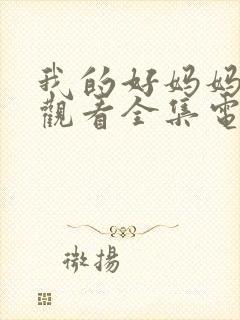 我的好妈妈
觀看全集電
微揚